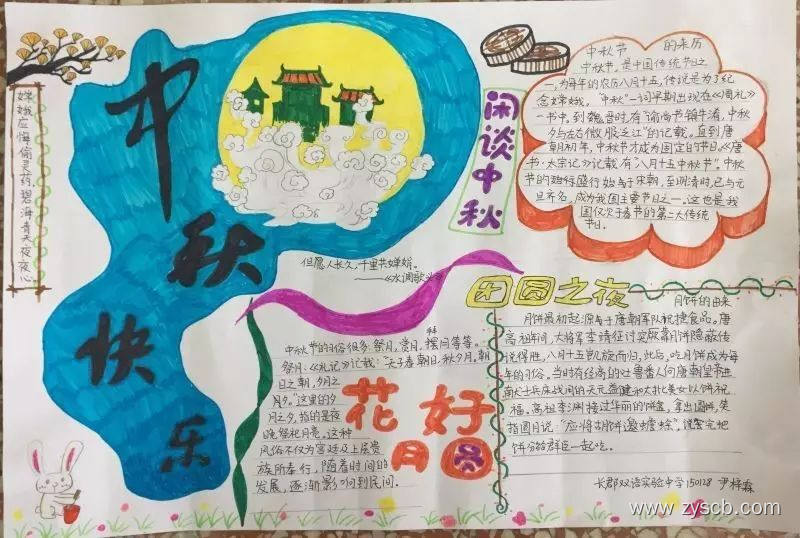 中秋快乐
嫦娥应悔偷灵药碧海青天夜夜心
闲谈中秋
中秋节 的来历
中秋节,是中国传统节日之
一,为每年的农历八月十五,传说是为了纪
念嫦娥。"中秋"一词早期出现在《周礼》
一书中,到魏晋时,有"谕尚书镇牛渚,中秋
夕与左右微服泛江"的记载。直到唐
朝初年,中秋节才成为固定的节日。《唐
书·太宗记》记载有"八月十五中秋节"。中秋
节的盛行始于宋朝,至明清时,已与元
旦齐名,成为我国主要节日之一。这也是我
国仅次于春节的第二大传统
节日。
但愿人长久,千里共婵娟。
——《水调歌头》
团圆之夜
月饼的由来
月饼最初起源于唐朝军队祝捷食品。唐
高祖年间,大将军李靖征讨突厥靠月饼隐蔽传
说得胜,八月十五凯旋而归,此后,吃月饼成为每
年的习俗。当时有经商的吐鲁番人向唐朝皇帝
饼祝
福。高祖李渊接过华丽的饼盒,拿出圆饼,笑
指圆月说:"应将胡饼邀蟾蜍"。说完把
饼分给群臣一起吃。
中秋节的习俗很多,祭月,赏月,拜月,摆月等等。
祭月:《礼记》记载:"天子春朝日,秋夕月。朝
日之朝,夕月之
夕。"这里的夕
月之夕,指的是夜
晚祭祀月亮。这种
风俗不仅为宫廷及上层贵
族所奉行,随着时间的
发展,逐渐影响到民间.
花好
月圆
长郡双语实验中学150128 尹梓霖
www.zyscb.com